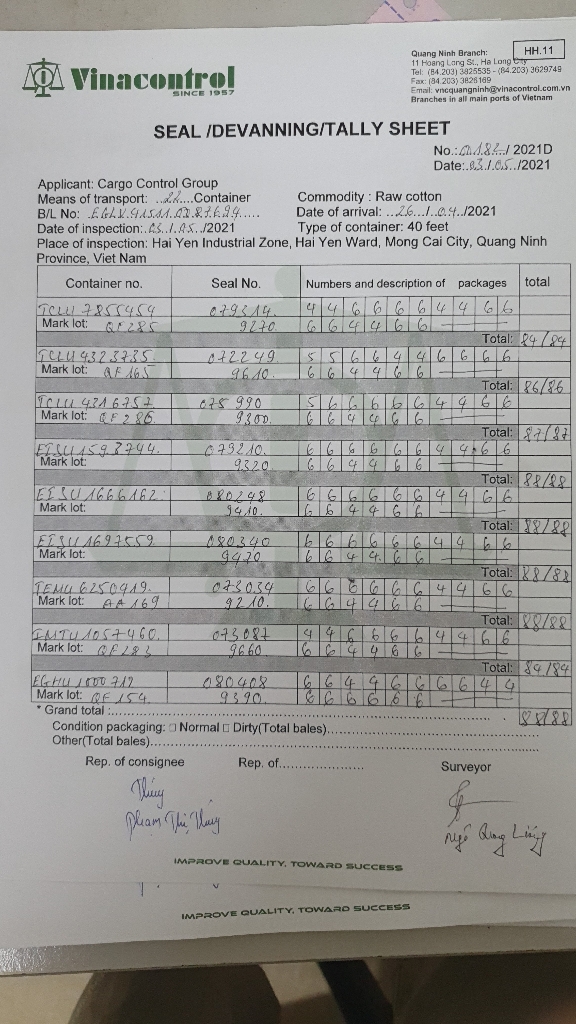 Vinacontrol
SINCE 1957
Quang Ninh Branch:
HH.11
11 Hoang Long St., Ha Long City
Tel: (84.203) 3825535 - (84.203) 3629749
Fax: (84.203) 3826169
Email: vncquangninh@vinacontrol.com.vn
Branches in all main ports of Vietnam
SEAL /DEVANNING/TALLY SHEET
No.: / 2021D
Date: 03/05/2021
Applicant: Cargo Control Group
Means of transport: ..22....Container
Commodity : Raw cotton
B/L No:
Date of arrival: ..26.../.04../2021
Date of inspection: 03./.05../2021
Type of container: 40 feet
Place of inspection: Hai Yen Industrial Zone, Hai Yen Ward, Mong Cai City, Quang Ninh
Province, Viet Nam
Container no. Seal No. Numbers and description of packages total
TCLU 7855454 079314 4 4 6 6 6 6 4 4 6 6
Mark lot: QF285 9270 6 6 4 4 6 6
Total: 84/84
TCLU 4323735 072249 5 5 6 6 4 4 6 6 6 6
Mark lot: QF165 9610 6 6 4 4 6 6
Total: 86/86
TCLU 4316757 075990 5 6 6 6 6 6 4 4 6 6
Mark lot: QF286 9300 6 6 4 4 6 6
Total: 87/87
EISU 1593744 079210 6 6 6 6 6 6 4 4 6 6
Mark lot: 9320 6 6 4 4 6 6
Total: 88/88
EISU 1666162 080248 6 6 6 6 6 6 4 4 6 6
Mark lot: 9410 6 6 4 4 6 6
Total: 88/88
EISU 1697559 080340 6 6 6 6 6 6 4 4 6 6
Mark lot: 9470 6 6 4 4 6 6
Total: 88/88
TEMU 6250919 073034 6 6 6 6 6 6 4 4 6 6
Mark lot: AA169 9210 6 6 4 4 6 6
Total: 88/88
1057460 073087 4 4 6 6 6 6 4 4 6 6
Mark lot: QF283 9660 6 6 4 4 6 6
Total: 84/84
EGHU 1000719 080408 6 6 4 4 6 6 6 6 4 4
Mark lot: QF154 9390 6 6 6 6 6 6
* Grand total : 88/88
Condition packaging: □ Normal □ Dirty(Total bales)
Other(Total bales)
Rep. of consignee Rep. of Surveyor
Thúy
Phạm Thị Thúy
Ngô Quang
IMPROVE QUALITY, TOWARD SUCCESS
IMPROVE QUALITY, TOWARD SUCCESS